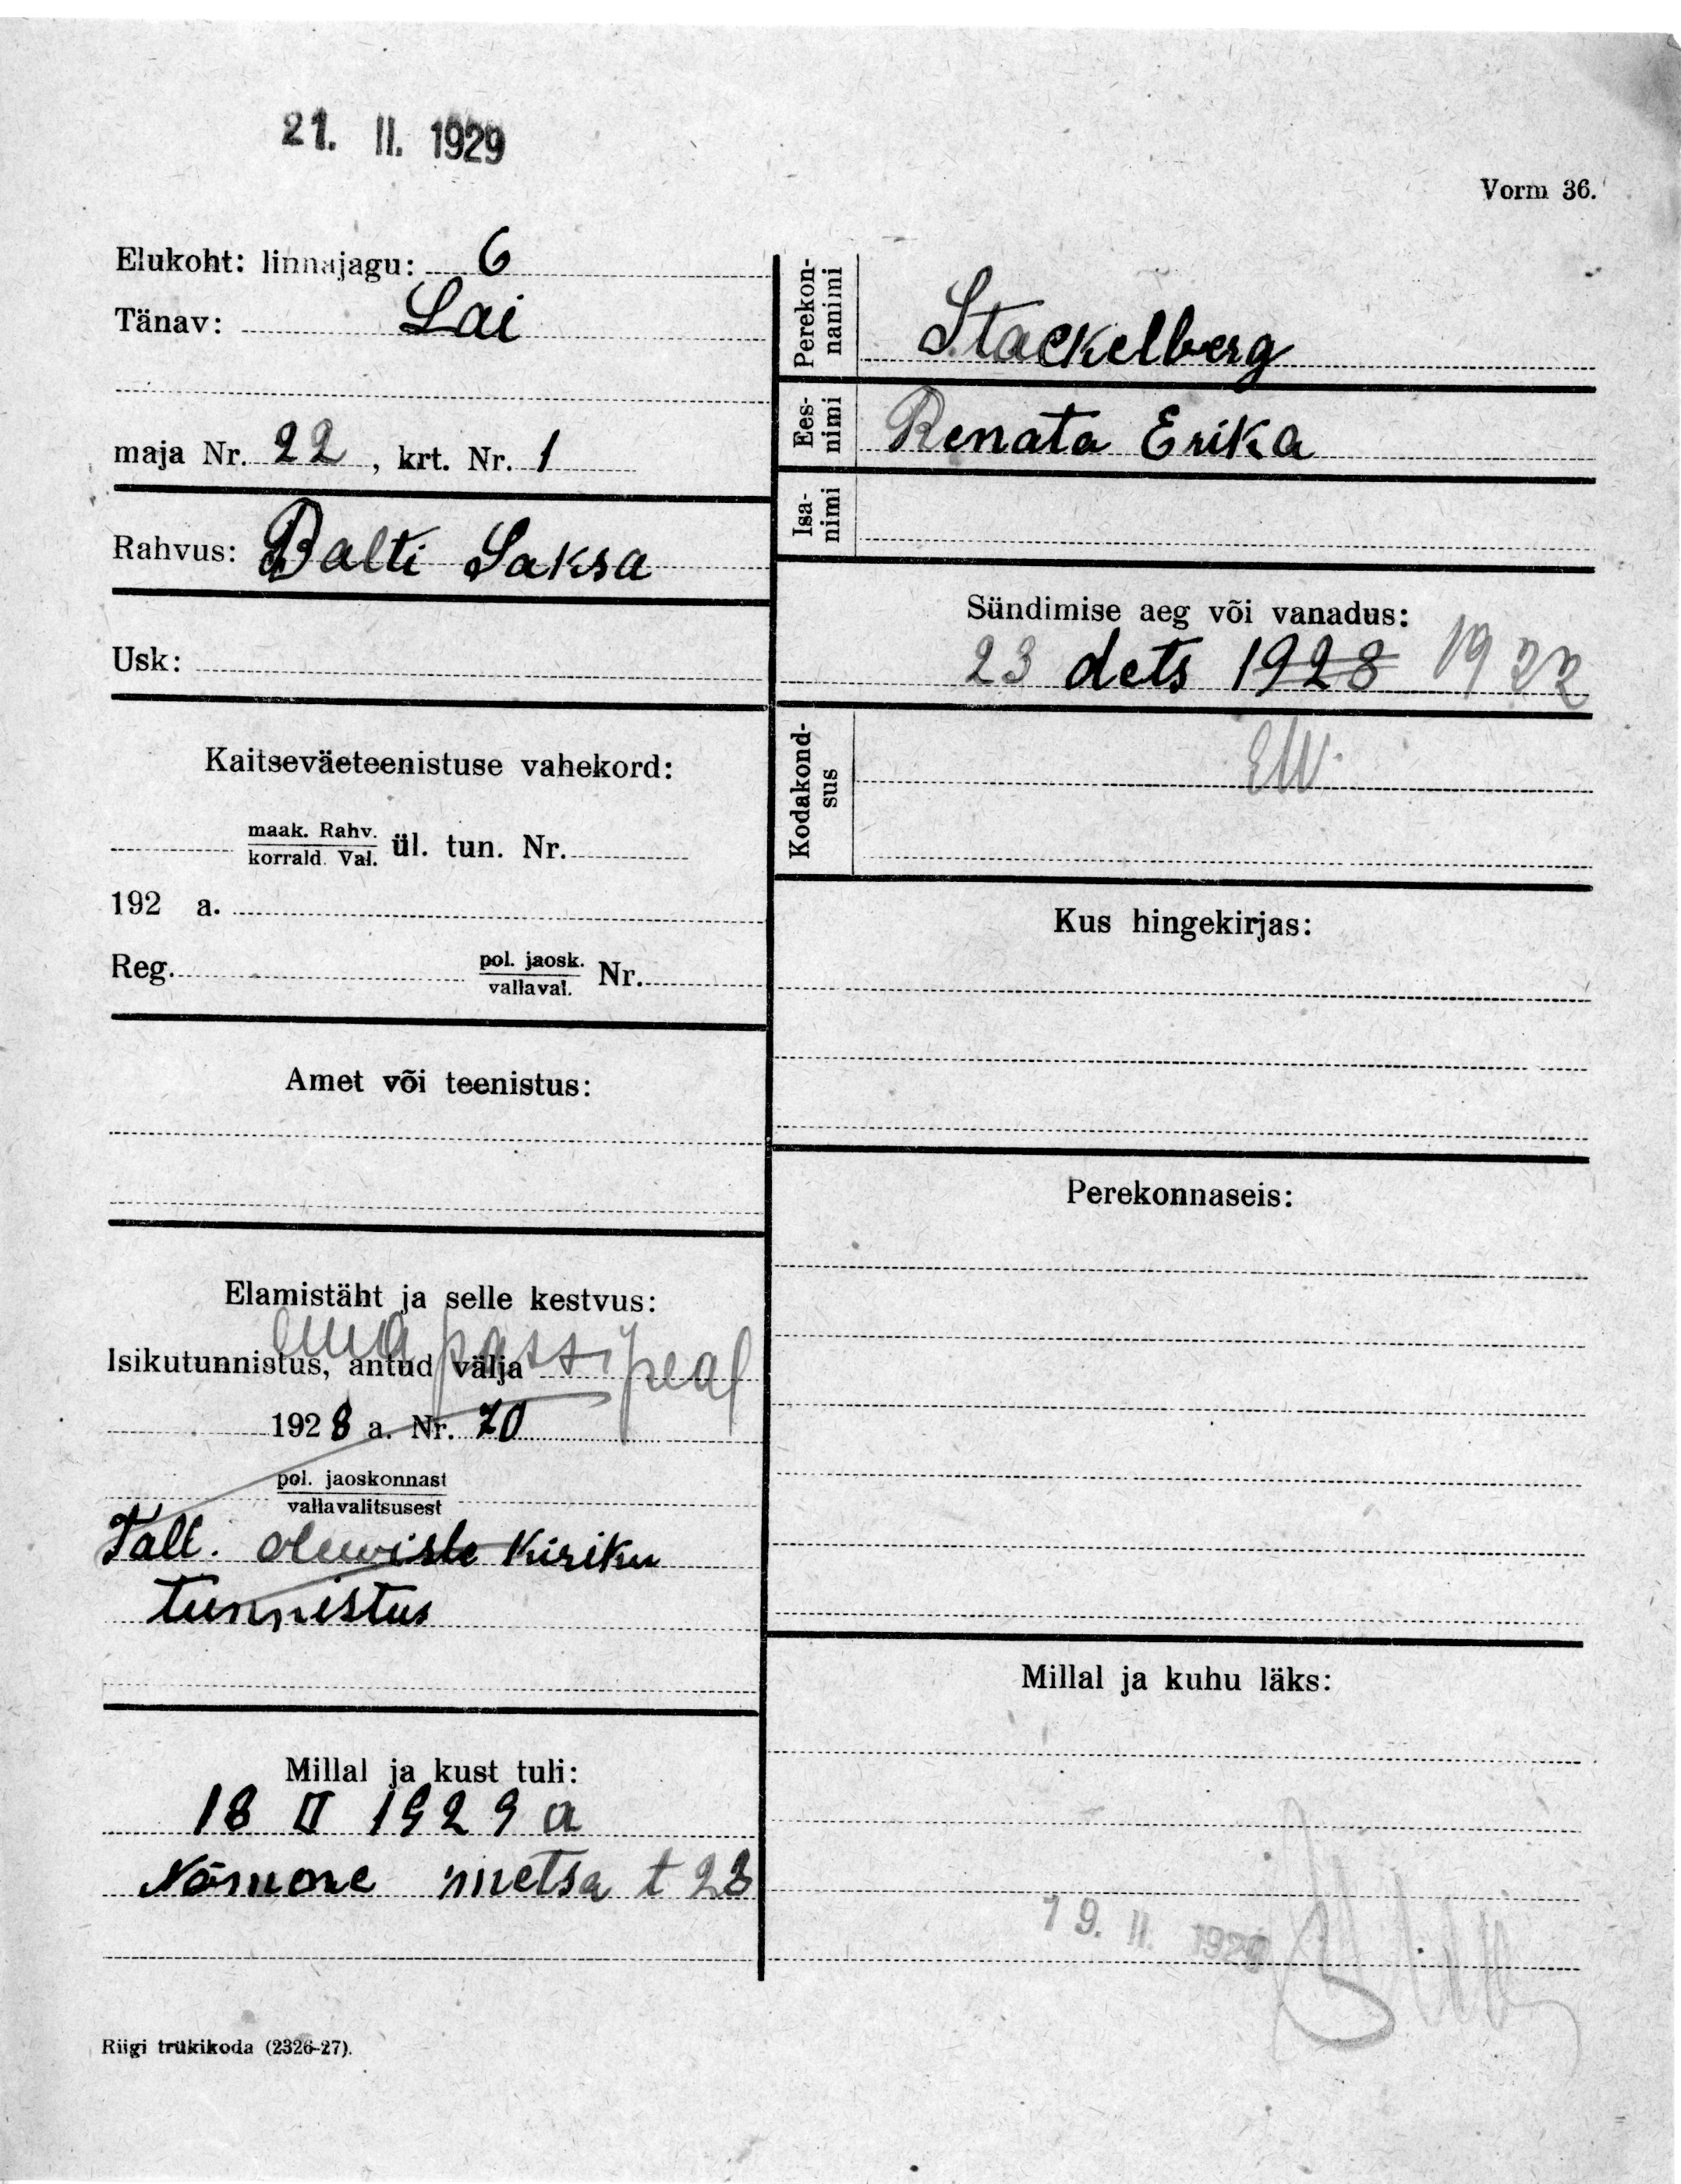 21. II. 1929
Vorm 36.
Elukoht: linnajagu: 6
Tänav: Lai
maja Nr. 22, krt. Nr. 1
Rahvus: Balti Saksa
Usk:
Kaitseväeteenistuse vahekord:
maak. Rahv.
korrald. Val. ül. tun. Nr.
192 a.
Reg. pol. jaosk.
vallaval. Nr.
Amet või teenistus:
Elamistäht ja selle kestvus:
ema passi peal
Isikutunnistus, antud välja
1928 a. Nr. 70
pol. jaoskonnast
vallavalitsusest
Tall. olewiste Kiriku
tunnistus
Millal ja kust tuli:
18 II 1929 a
Nõmme metsa t 23
Riigi trükikoda (2326-27).
Perekon-
nanimi
Stackelberg
Ees-
nimi
Renata Erika
Isa-
nimi
Sündimise aeg või vanadus:
23 dets 1928 1922
Kodakond-
sus
EW.
Kus hingekirjas:
Perekonnaseis:
Millal ja kuhu läks:
19. II. 1929